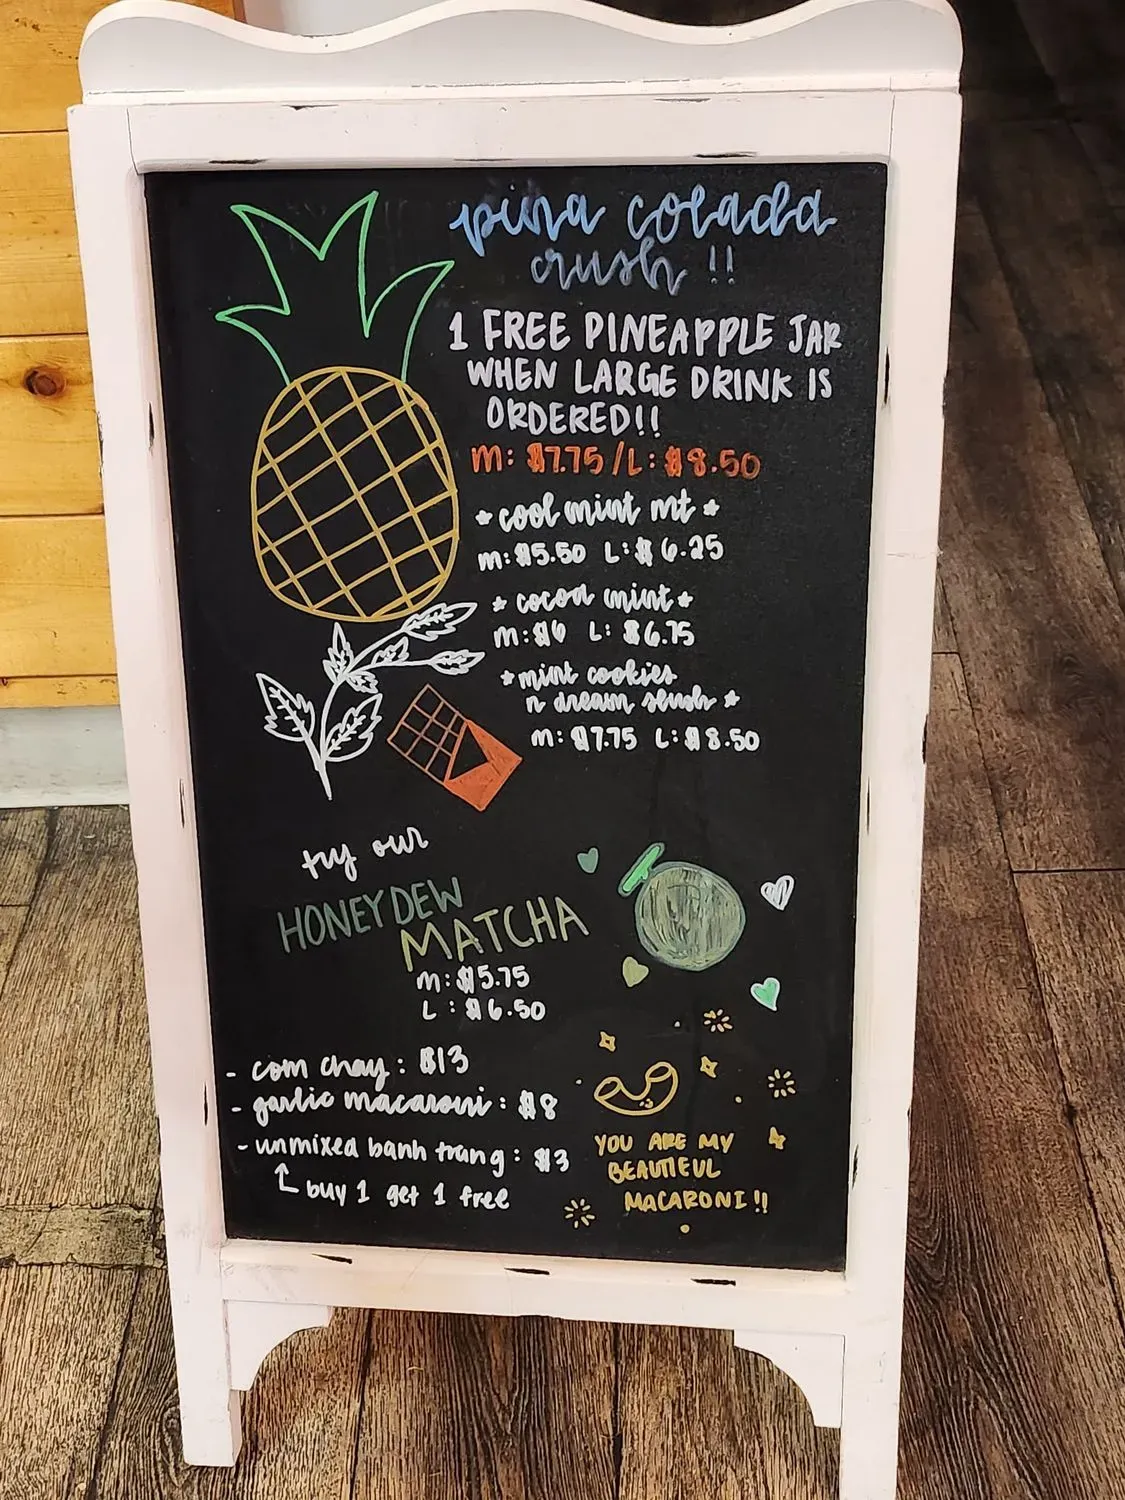 pina colada
crush !!
1 FREE PINEAPPLE JAR
WHEN LARGE DRINK IS
ORDERED!!
M: $7.75 / L: $8.50
* cool mint mt *
M: $5.50 L: $6.25
* cocoa mint *
M: $6 L: $6.75
* mint cookies
n dream slush *
M: $7.75 L: $8.50
try our
HONEYDEW
MATCHA
M: $5.75
L: $6.50
- com chay: $13
- garlic macaroni: $8
- unmixed banh trang: $3
buy 1 get 1 free
YOU ARE MY
BEAUTIFUL
MACARONI!!